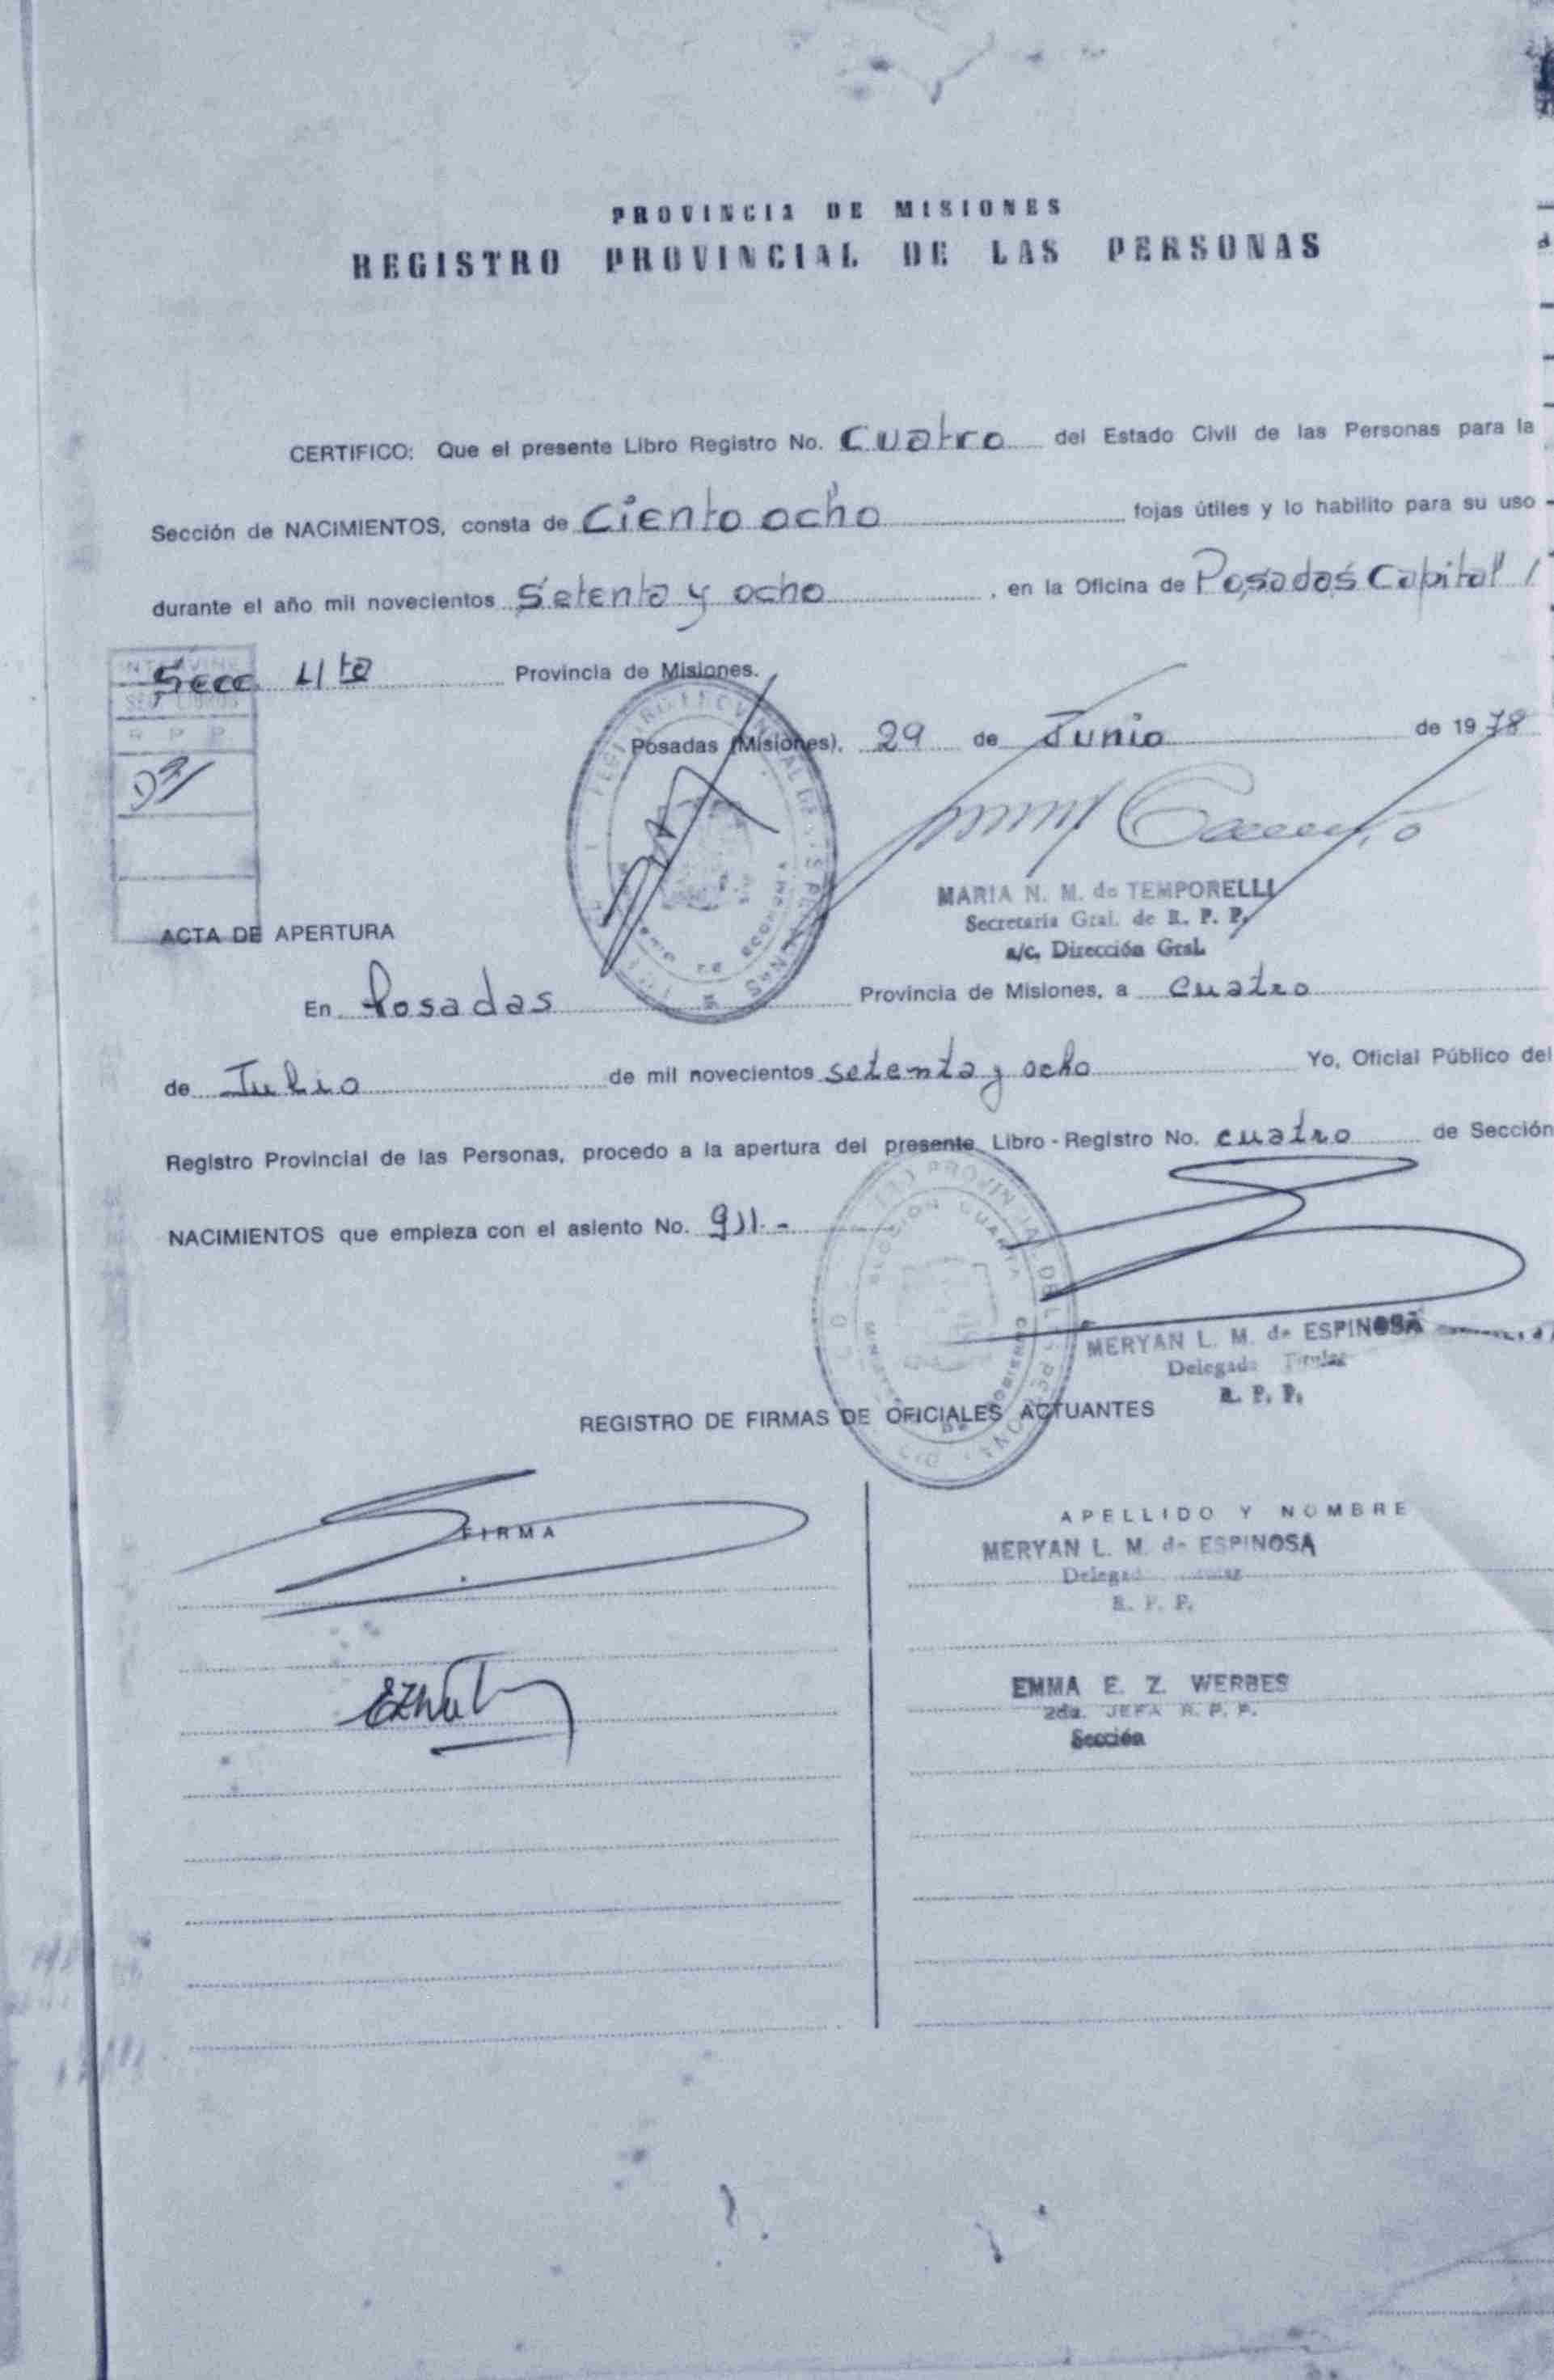 PROVINCIA DE MISIONES
REGISTRO PROVINCIAL DE LAS PERSONAS
CERTIFICO: Que el presente Libro Registro No. Cuatro del Estado Civil de las Personas para la
Sección de NACIMIENTOS, consta de Ciento ocho fojas útiles y lo habilito para su uso
durante el año mil novecientos Setenta y ocho, en la Oficina de Posadas Capital
Secc. 4ta Provincia de Misiones.
R P P
Posadas (Misiones), 29 de Junio de 1978
MARIA N. M. de TEMPORELLI
Secretaria Gral. de R. P. P.
a/c. Dirección Gral.
ACTA DE APERTURA
En Posadas Provincia de Misiones, a cuatro
de Julio de mil novecientos setenta y ocho Yo, Oficial Público del
Registro Provincial de las Personas, procedo a la apertura del presente Libro - Registro No. cuatro de Sección
NACIMIENTOS que empieza con el asiento No. 911.-
MERYAN L. M. de ESPINOSA
Delegada Titular
R. P. P.
REGISTRO DE FIRMAS DE OFICIALES ACTUANTES
FIRMA
APELLIDO Y NOMBRE
MERYAN L. M. de ESPINOSA
R. P. P.
EMMA E. Z. WERBES
2da. JEFA R. P. P.
Sección